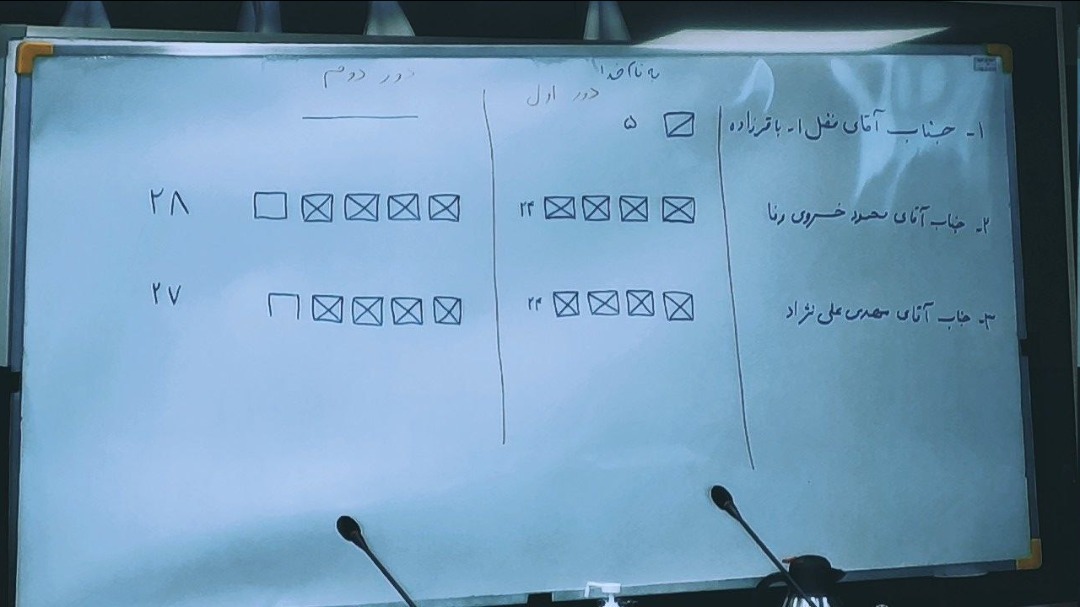 به نام خدا
دور اول
دور دوم
۱- جناب آقای باقرزاده ۵
۲- جناب آقای محمود خسروی وفا ۲۴ ۲۸
۳- جناب آقای مهدی علی نژاد ۲۴ ۲۷